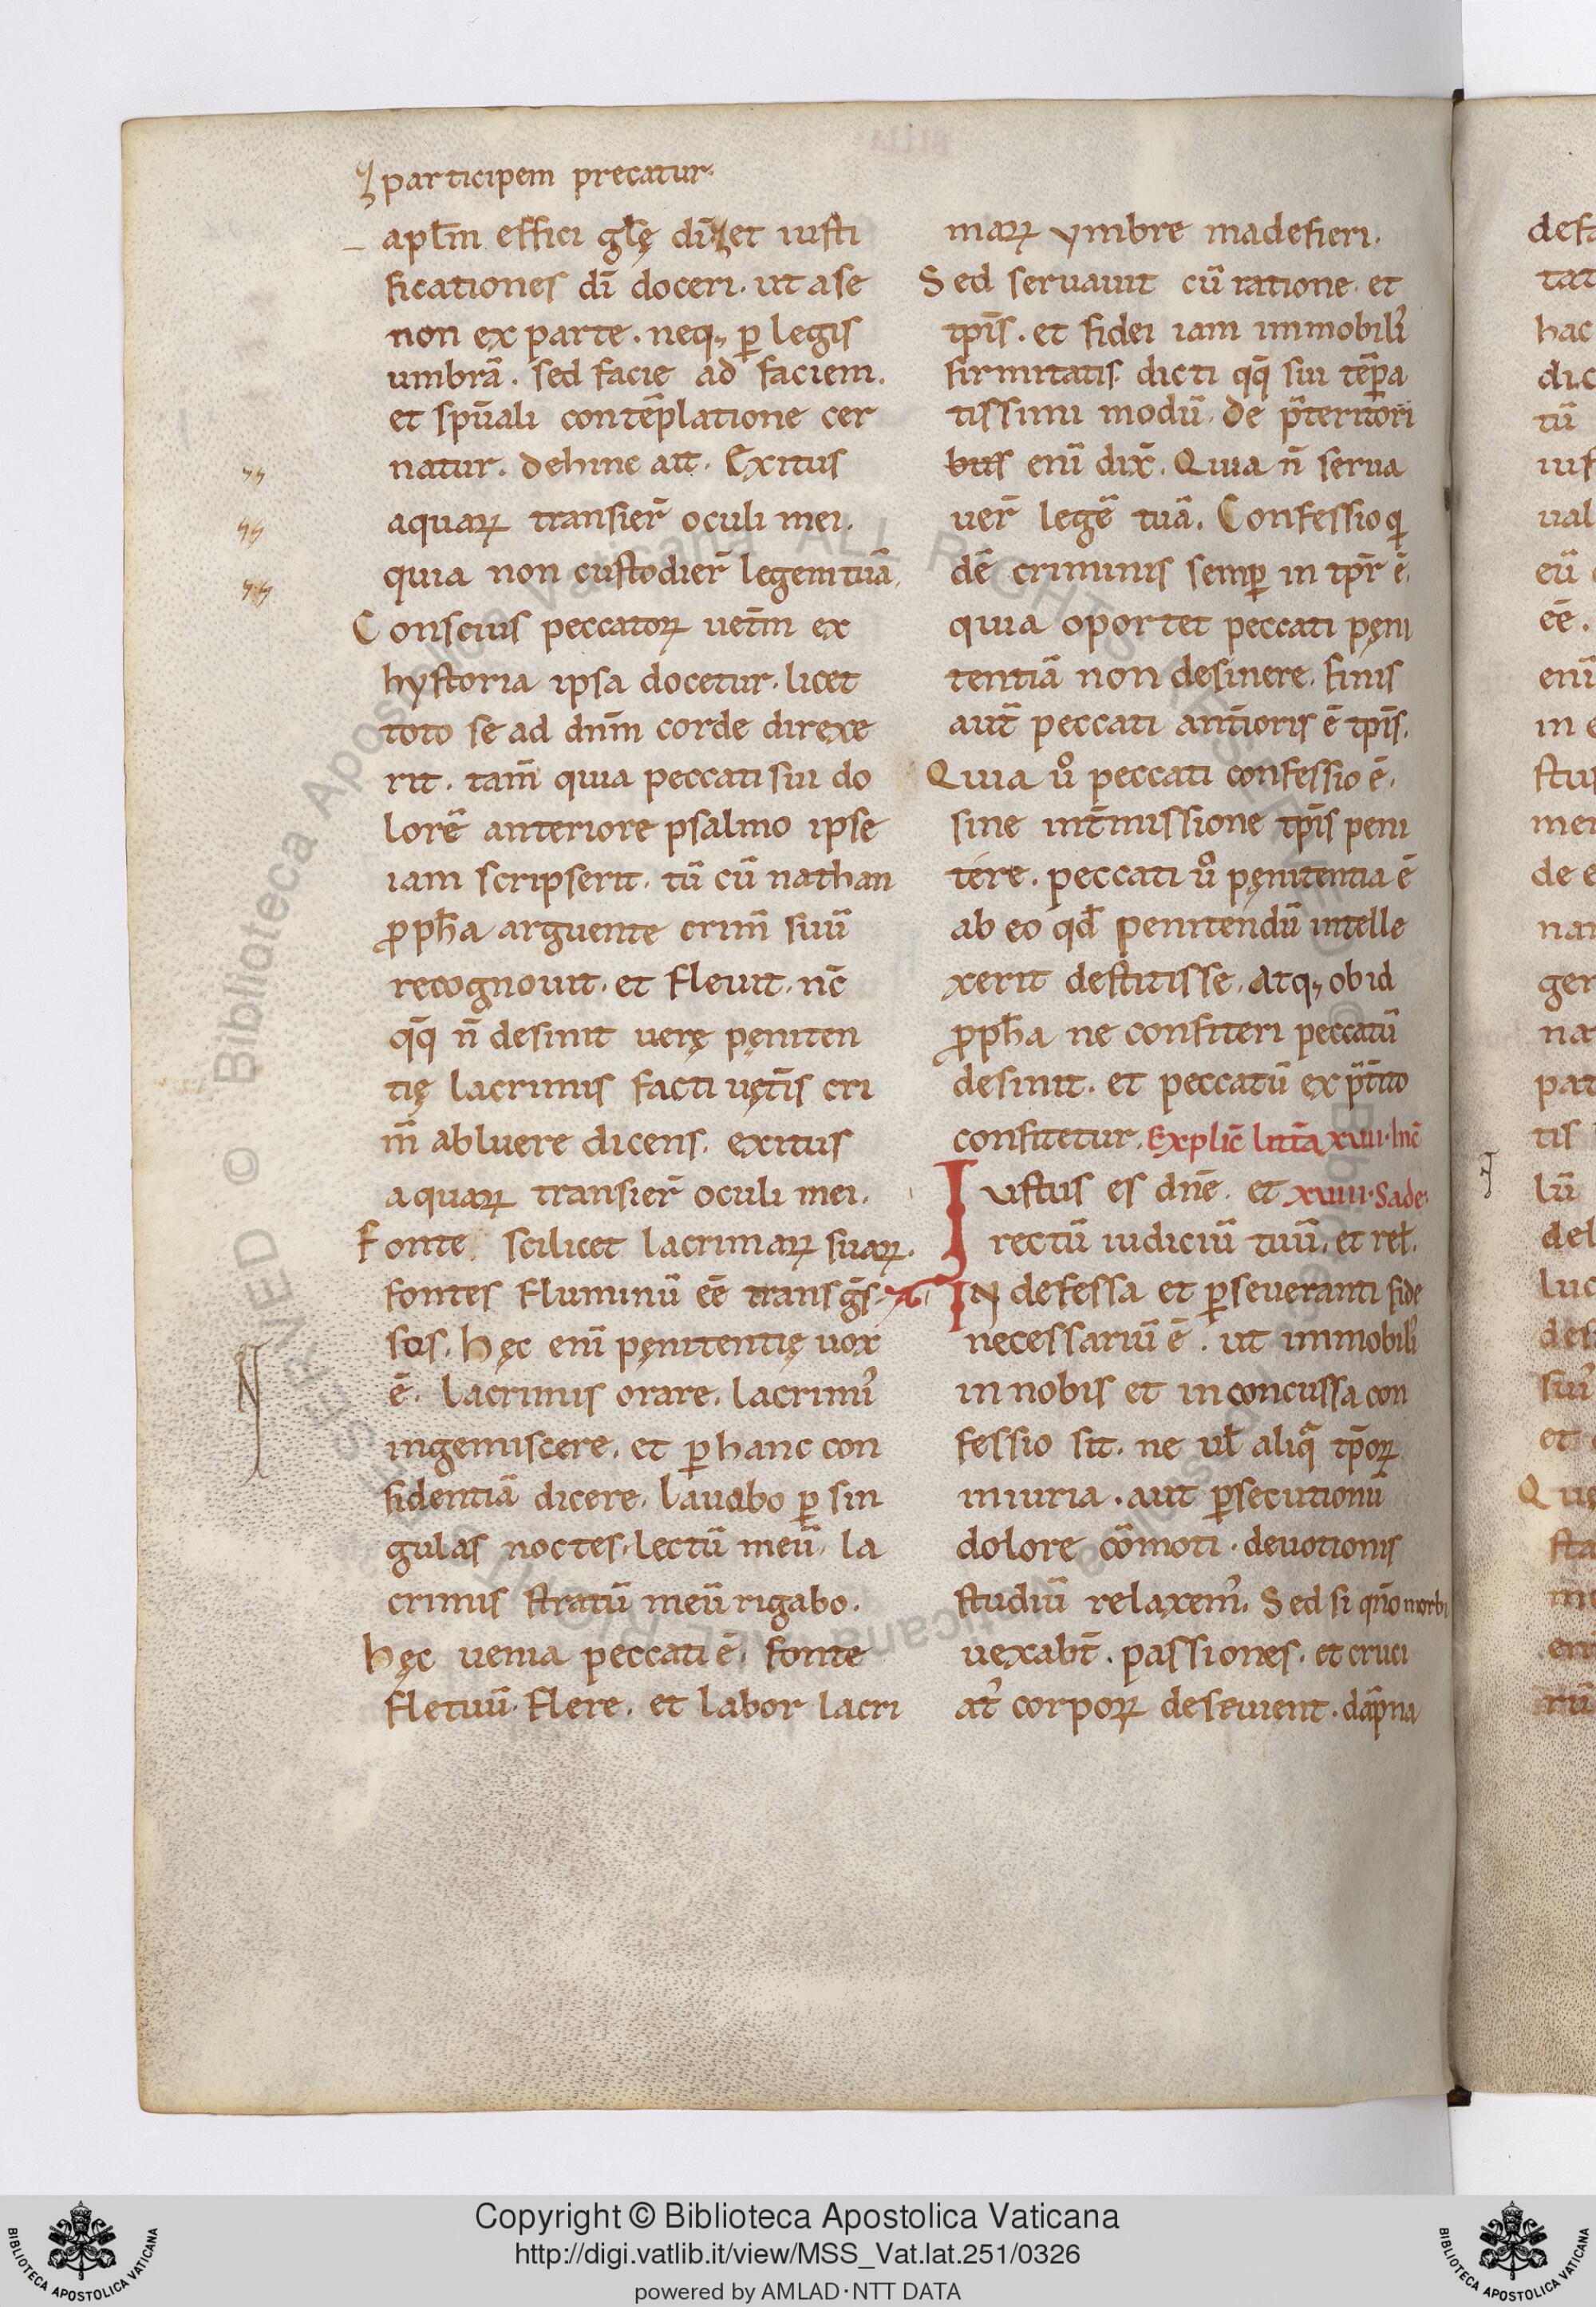 participem precatur.
apl̄m effici glę dī et iusti
ficationes dī doceri. ut a se
non ex parte. neq; ꝑ legis
umbrā. sed facie ad faciem.
et spūali contēplatione cer
natur. dehinc ait. Exitus
aquaꝝ transier̄ oculi mei.
quia non custodier̄ legem tuā.
Conscius peccatoꝝ uet̄m ex
hystoria ipsa docetur. licet
toto se ad dnm̄ corde direxe
rit. tam̄ quia peccati sui do
lorē anteriore psalmo ipse
iam scripserit. tū cū nathan
ꝓph̄a arguente crim̄ suū
recognouit. et fleuit. nc̄
qq̄ n̄ desinit uerę pęniten
tię lacrimis facti uęt̄is cri
m̄ abluere dicens. exitus
aquaꝝ transier̄ oculi mei.
Fonte scilicet lacrimaꝝ suaꝝ.
fontes fluminū eē transḡs
sos. hęc enī pęnitentię uox
ē. lacrimis orare. lacrimı᾽
ingemiscere. et ꝑ hanc con
fidentiā dicere. lauabo ꝑ sin
gulas noctes. lectū meū. la
crimis stratū meū rigabo.
hęc uenia peccati ē. fonte
fletuū. flere. et labor lacri
maꝝ ymbre madefieri.
Sed seruauit cū ratione. et
tp̄is. et fidei iam immobilı᾽
firmitatis. dicti qq̄ sui tēpa
tissimi modū. de p̄teritori
bus enī dix̄. Quia n̄ serua
uer̄ legē tuā. Confessio qi
dē criminis semꝑ in tpr̄ ē.
quia oportet peccati pęni
tentiā non desinere. finis
aut̄ peccati ant̄ioris ē tp̄is.
Quia uo̊ peccati confessio ē.
sine int̄missione tp̄is peni
tere. peccati uo̊ pęnitentia ē
ab eo qd̄ penitendū intelle
xerit destitisse. Atq; ob id
ꝓph̄a ne confiteri peccatū
desinit. et peccatū ex p̄t̄ito
confitetur. Explic̄ litt̄a xviii. Inc̄
Iustus es dn̄e. et xviiii. Sade.
rectū iudiciū tuū. et rel̄.
In defessa et ꝑseueranti fide
necessariū ē. ut immobilı᾽
in nobis et inconcussa con
fessio sit. ne ul̄ aliq̄ tp̄oꝝ
iniuria. aut ꝑsecutionū
dolore cōmoti. deuotionis
studiū relaxem᾽. Sed si qn̄o morbi
uexabt̄. passiones. et cruci
at᾽ corpoꝝ deseuient. dāpna
Copyright © Biblioteca Apostolica Vaticana
http://digi.vatlib.it/view/MSS_Vat.lat.251/0326
powered by AMLAD·NTT DATA